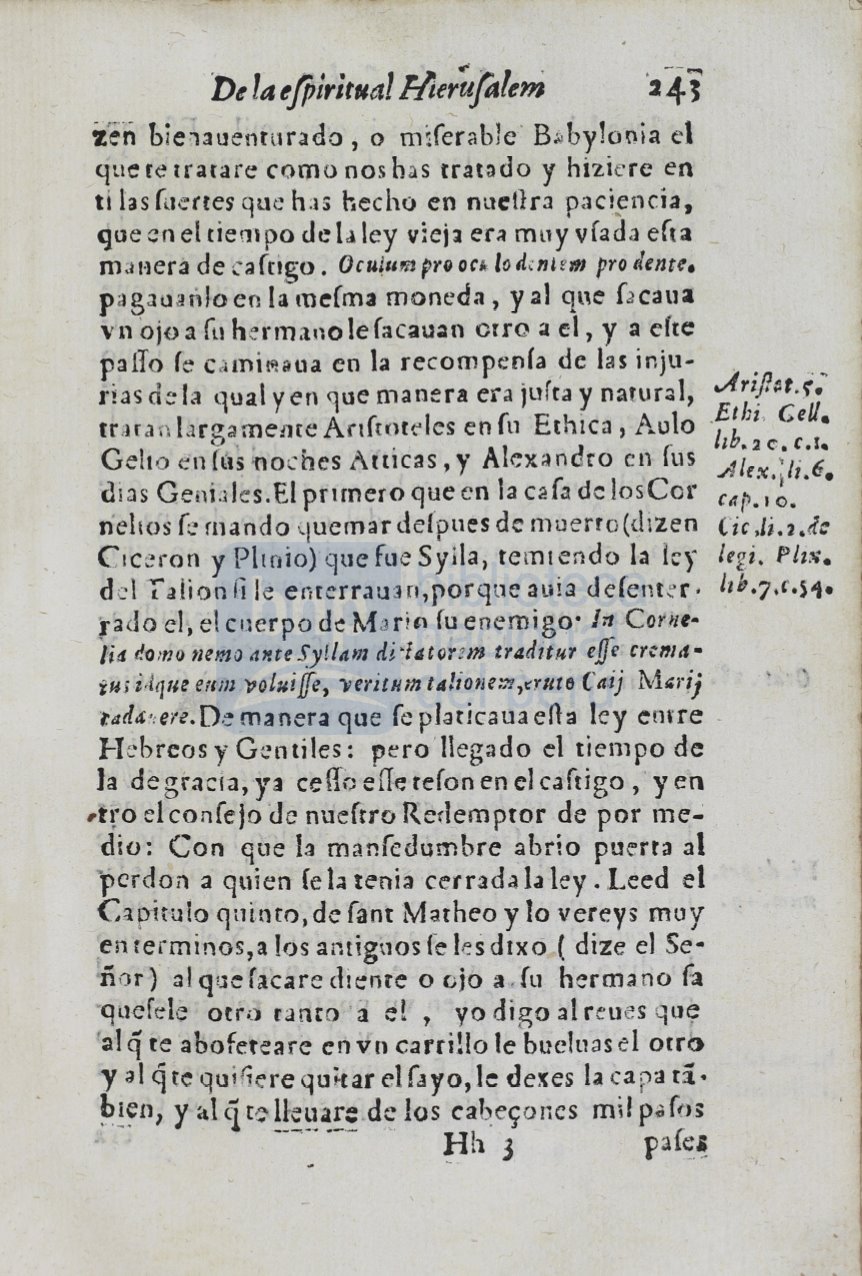 De la eſpiritual Hieruſalem 243
zen bienauenturado, o miſerable Babylonia el
que te tratare como nos has tratado y hiziere en
ti las ſuertes que has hecho en nueſtra paciencia,
que en el tiempo de la ley vieja era muy vſada eſta
manera de caſtigo. Oculum pro oculo dentem pro dente.
pagauanlo en la meſma moneda, y al que ſacaua
vn ojo a ſu hermano le ſacauan otro a el, y a eſte
paſſo ſe caminaua en la recompenſa de las inju-
rias de la qual y en que manera era juſta y natural,
tratan largamente Ariſtoteles en ſu Ethica, Aulo
Gelio en ſus noches Atticas, y Alexandro en ſus
dias Geniales. El primero que en la caſa de los Cor
nelios ſe mando quemar deſpues de muerto (dizen
Ciceron y Plinio) que fue Sylla, temiendo la ley
del Talion ſi le enterrauan, porque auia deſenter-
rado el, el cuerpo de Mario ſu enemigo. In Corne-
lia domo nemo ante Syllam dictatorem traditur eſſe crema-
tus idque eum voluiſſe, veritum talionem, eruto Caij Marij
cadauere. De manera que ſe platicaua eſta ley entre
Hebreos y Gentiles: pero llegado el tiempo de
la de gracia, ya ceſſo eſſe teſon en el caſtigo, y en
tro el conſejo de nueſtro Redemptor de por me-
dio: Con que la manſedumbre abrio puerta al
perdon a quien ſe la tenia cerrada la ley. Leed el
Capitulo quinto, de ſant Matheo y lo vereys muy
en terminos, a los antiguos ſe les dixo ( dize el Se-
ñor) al que ſacare diente o ojo a ſu hermano ſa
queſele otro tanto a el, yo digo al reues que
al q̃ te abofeteare en vn carrillo le bueluas el otro
y al q̃ te quiſiere quitar el ſayo, le dexes la capa tã-
bien, y al q̃ te lleuare de los cabeçones mil paſos
Hh 3 paſes
Ariſtot. 5.
Ethi. Gell.
lib. 20. c. 1.
Alex. li. 6.
cap. 10.
Cic. li. 2. de
legi. Plin.
lib. 7. c. 54.